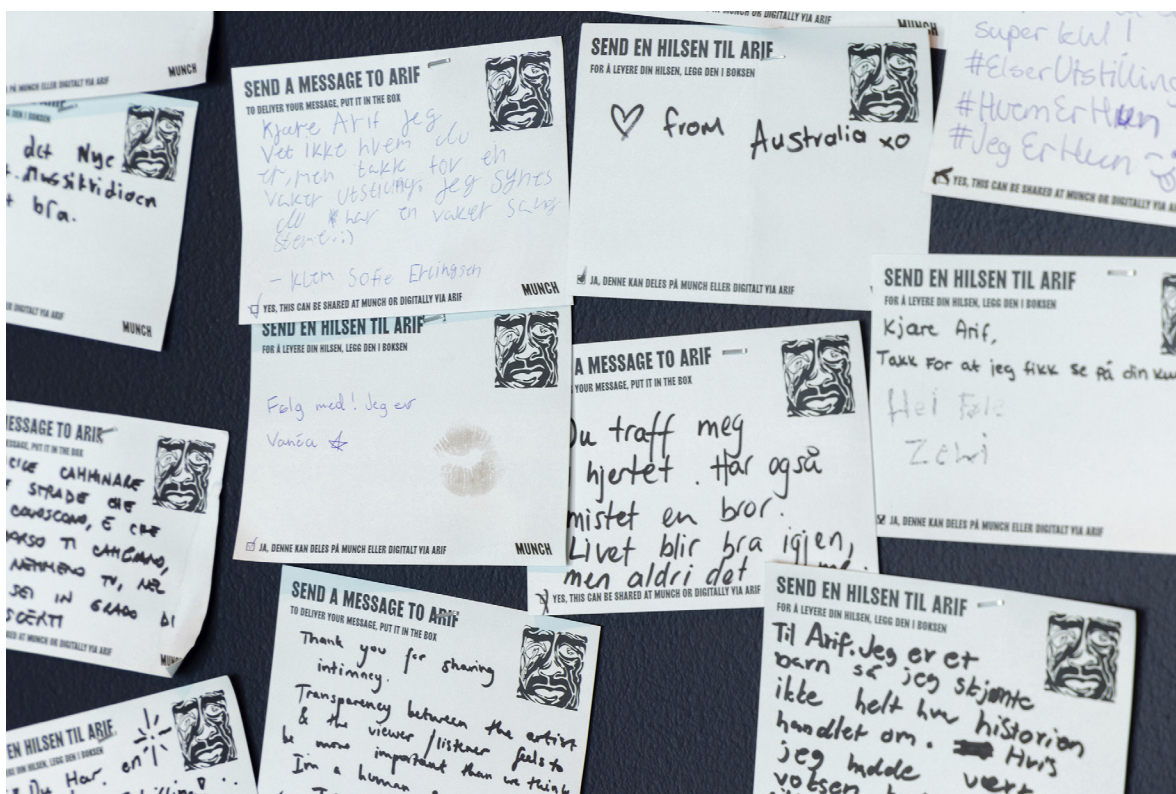 MUNCH
det Nye
bra.
MUNCH
SEND A MESSAGE TO ARIF
TO DELIVER YOUR MESSAGE, PUT IT IN THE BOX
Kjære Arif jeg
Vet ikke hvem du
er, men takk for en
vaker utstilling. jeg synes
du har en vaker sang
stemme :)
- Klem Sofie Erlingsen
YES, THIS CAN BE SHARED AT MUNCH OR DIGITALLY VIA ARIF
MUNCH
MUNCH OR DIGITALLY VIA ARIF
MUNCH
SEND EN HILSEN TIL ARIF
FOR Å LEVERE DIN HILSEN, LEGG DEN I BOKSEN
♡ from Australia xo
JA, DENNE KAN DELES PÅ MUNCH ELLER DIGITALT VIA ARIF
super kul!
#ElserUtstilling
#HvemErHun
#JegErHun
YES, THIS CAN BE SHARED AT MUNCH OR DIGITALLY VIA
SEND EN HILSEN TIL ARIF
FOR Å LEVERE DIN HILSEN, LEGG DEN I BOKSEN
Følg med! Jeg er
Vanéa ☆
JA, DENNE KAN DELES PÅ MUNCH ELLER DIGITALT VIA ARIF
MUNCH
A MESSAGE TO ARIF
YOUR MESSAGE, PUT IT IN THE BOX
Du traff meg
hjertet. Har også
mistet en bror.
Livet blir bra igjen,
men aldri det
YES, THIS CAN BE SHARED AT MUNCH OR DIGITALLY VIA ARIF
SEND EN HILSEN TIL ARIF
FOR Å LEVERE DIN HILSEN, LEGG DEN I BOKSEN
Kjære Arif,
Takk For at jeg fikk se på din
Hei
JA, DENNE KAN DELES PÅ MUNCH ELLER DIGITALT VIA ARIF
MESSAGE TO ARIF
MESSAGE, PUT IT IN THE BOX
CAMMINARE
STRADE CHE
CONOSCONO, E CHE
TI CAMBIANO,
NEMMENO TU, NEL
SEI IN GRADO DI
SHARED AT MUNCH OR DIGITALLY VIA ARIF
SEND A MESSAGE TO ARIF
TO DELIVER YOUR MESSAGE, PUT IT IN THE BOX
Thank you for sharing
intimney.
Transparency between the artist
& the viewer/listener feels to
be more important than we think
I'm a human
EN HILSEN TIL ARIF
DIN HILSEN, LEGG DEN I BOKSEN
Du Har en
SEND EN HILSEN TIL ARIF
FOR Å LEVERE DIN HILSEN, LEGG DEN I BOKSEN
Til Arif. Jeg er et
barn så jeg skjønte
ikke helt hva historien
handlet om. Hvis
jeg hadde vært
voksen